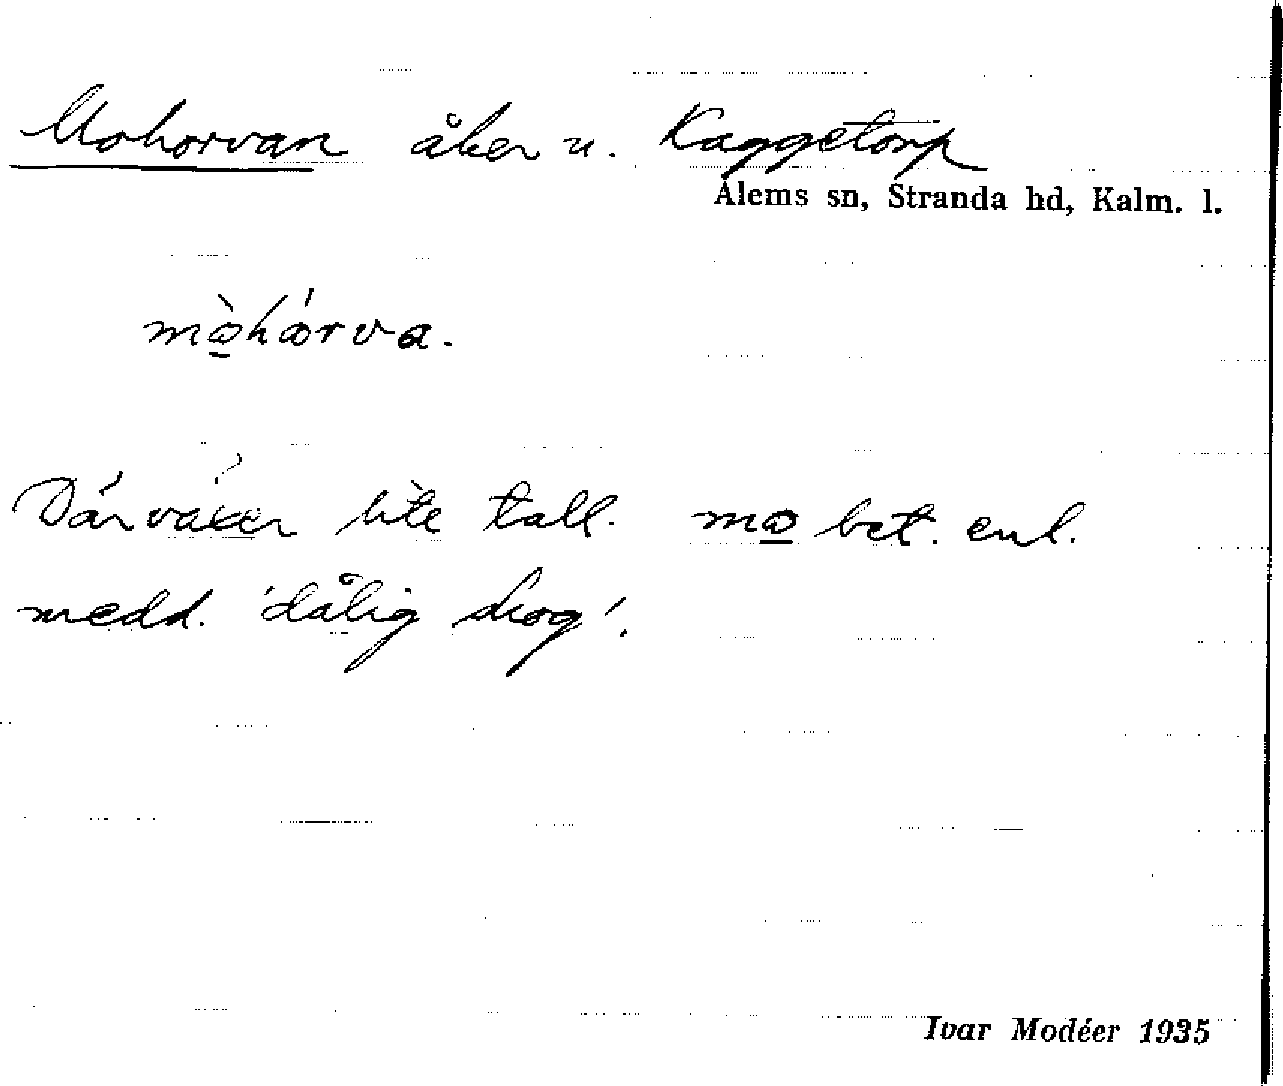 Mohorvan åker u. Kaggetorp
Ålems sn, Stranda hd, Kalm. l.
mò̲hórva.
Där växer lite tall. mo̲ bet. enl.
medd. 'dålig skog'.
Ivar Modéer 1935